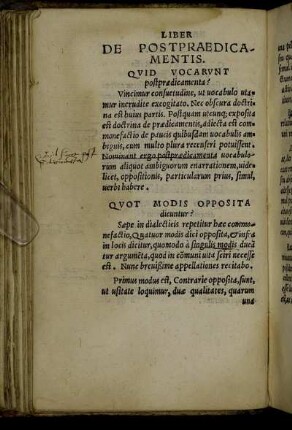 LIBER
DE POSTPRAEDICA-
MENTIS.
QVID VOCARVNT
postprædicamenta?
Vincimur consuetudine, ut uocabulo uta-
mur inerudite excogitato. Nec obscura doctri-
na est huius partis. Postquam utcunq; exposita
est doctrina de prædicamentis, adiecta est com-
monefactio de paucis quibusdam uocabulis am-
biguis, cum multo plura recenseri potuissent.
Nominant ergo postprædicamenta uocabulo-
rum aliquot ambiguorum enarrationem, uide-
licet, oppositionis, particularum prius, simul,
uerbi habere.
QVOT MODIS OPPOSITA
dicuntur?
Sæpe in dialecticis repetitur hæc commo-
nefactio, Quatuor modis dici opposita, & infra
in locis dicitur, quomodo à singulis modis ducã
tur argumẽta, quod in cõmuni uita sciri necesse
est. Nunc breuißime appellationes recitabo.
Primus modus est, Contrarie opposita, sunt,
ut usitate loquimur, duæ qualitates, quarum
una